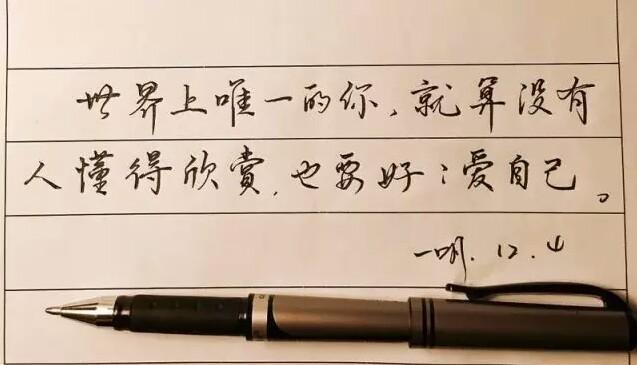 世界上唯一的你,就算没有
人懂得欣赏,也要好:爱自己。
一明.12.4